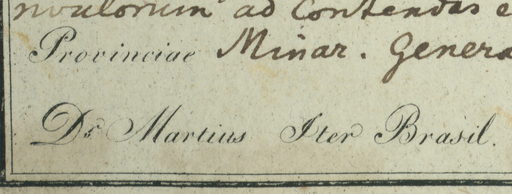 rivulorum ad Contendas e
Provinciae Minar. Genera
Dr. Martius Iter Brasil.